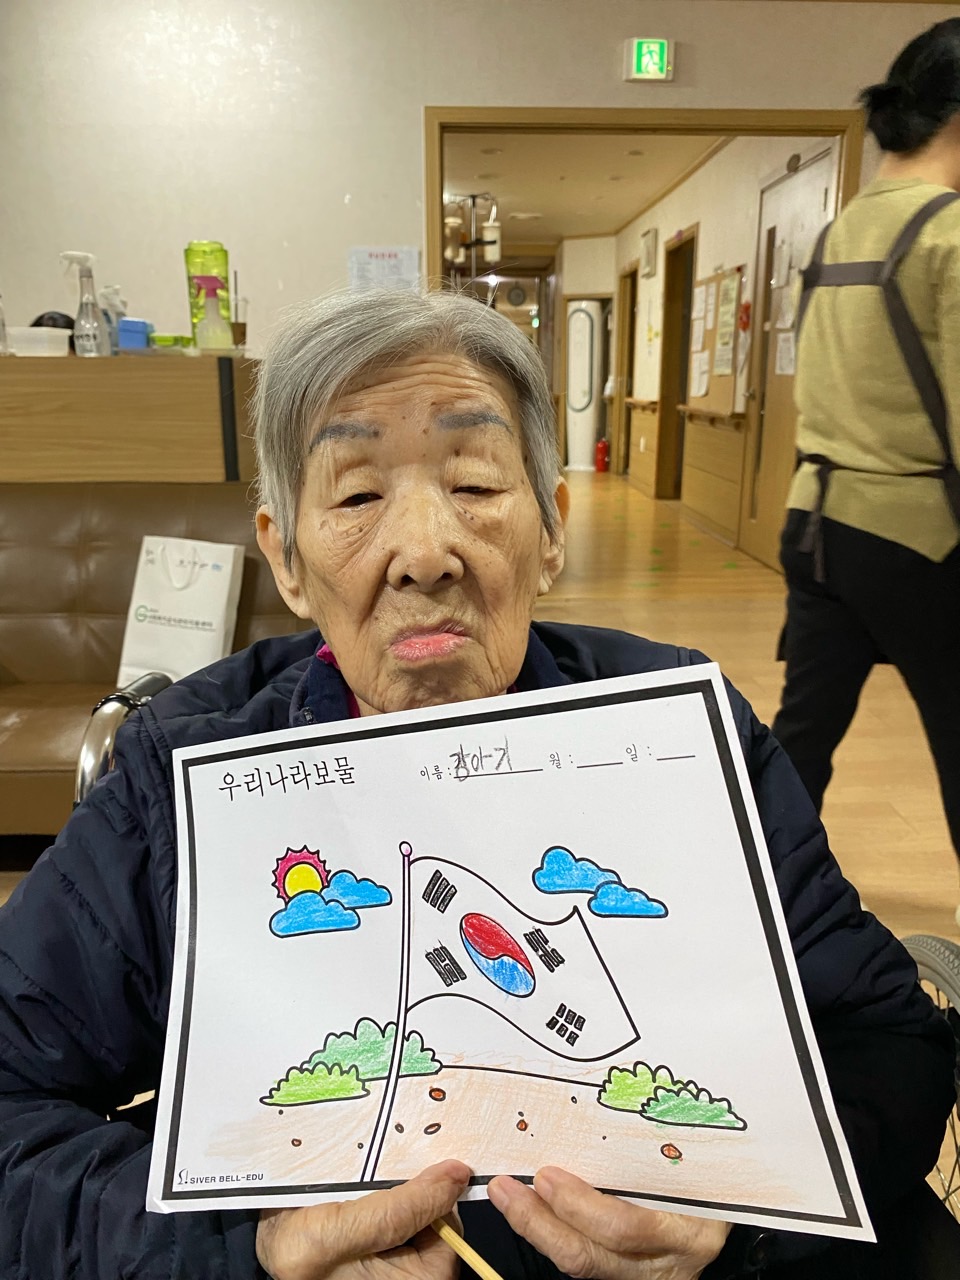 우리나라보물 이름 : 강아기 월 : 일 :
SIVER BELL-EDU